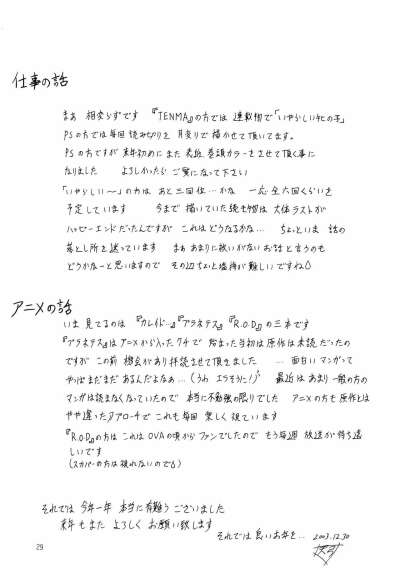 仕事の話
まぁ 相変らずです 『TENMA』の方では 連載物で「いやらしい牝の子」
PSの方では毎回読み切りを 月変りで描かせて頂いてます。
PSの方ですが 来年初めに また 表紙 巻頭カラーをさせて頂く事に
なりました よろしかったら ご覧になって下さい
「いやらしい〜」の方は あと 三回位…かな 一応 全六回くらいを
予定しています 今まで描いていた続き物は 大体ラストが
ハッピーエンドだったんですが これはどうなるかな… ちょいま 話の
落とし所を迷っています まぁ あまりに救いがないお話と言うのも
どうかなーと思いますので その辺ちょと塩梅が難しいですね
アニメの話
いま 見てるのは 『カレイド…』『プラネテス』『R.O.D』の三本です
『プラネテス』はアニメから入ったクチで 始まった当初は原作は未読だったの
ですが この前 機会があり拝読させて頂きました …面白いマンガって
やっぱまだまだあるんだよなぁ…(うわ エラそうに!) 最近はあまり一般の方の
マンガは読まなくなっていたので 本当に不勉強の限りでした アニメの方も原作とは
やや違ったアプローチで これも毎回 楽しく視ています
『R.O.D』の方は これはOVAの頃からファンでしたので もう毎週 放送が待ち遠
しいです
(スカパーの方は視れないので)
それでは 今年一年 本当に有難うございました
来年もまた よろしく お願い致します
それでは良いお年を… 2003.12.30
29